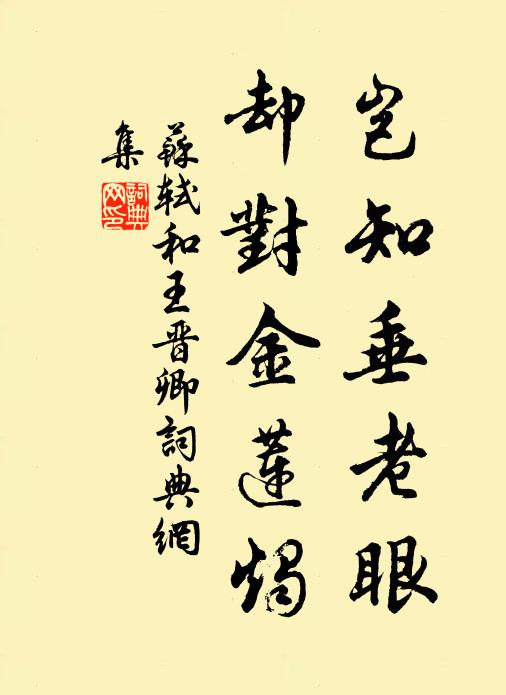 豈知垂老眼
却對金蓮燭
蘇軾和王晋卿詞典網
集
詞典
网印